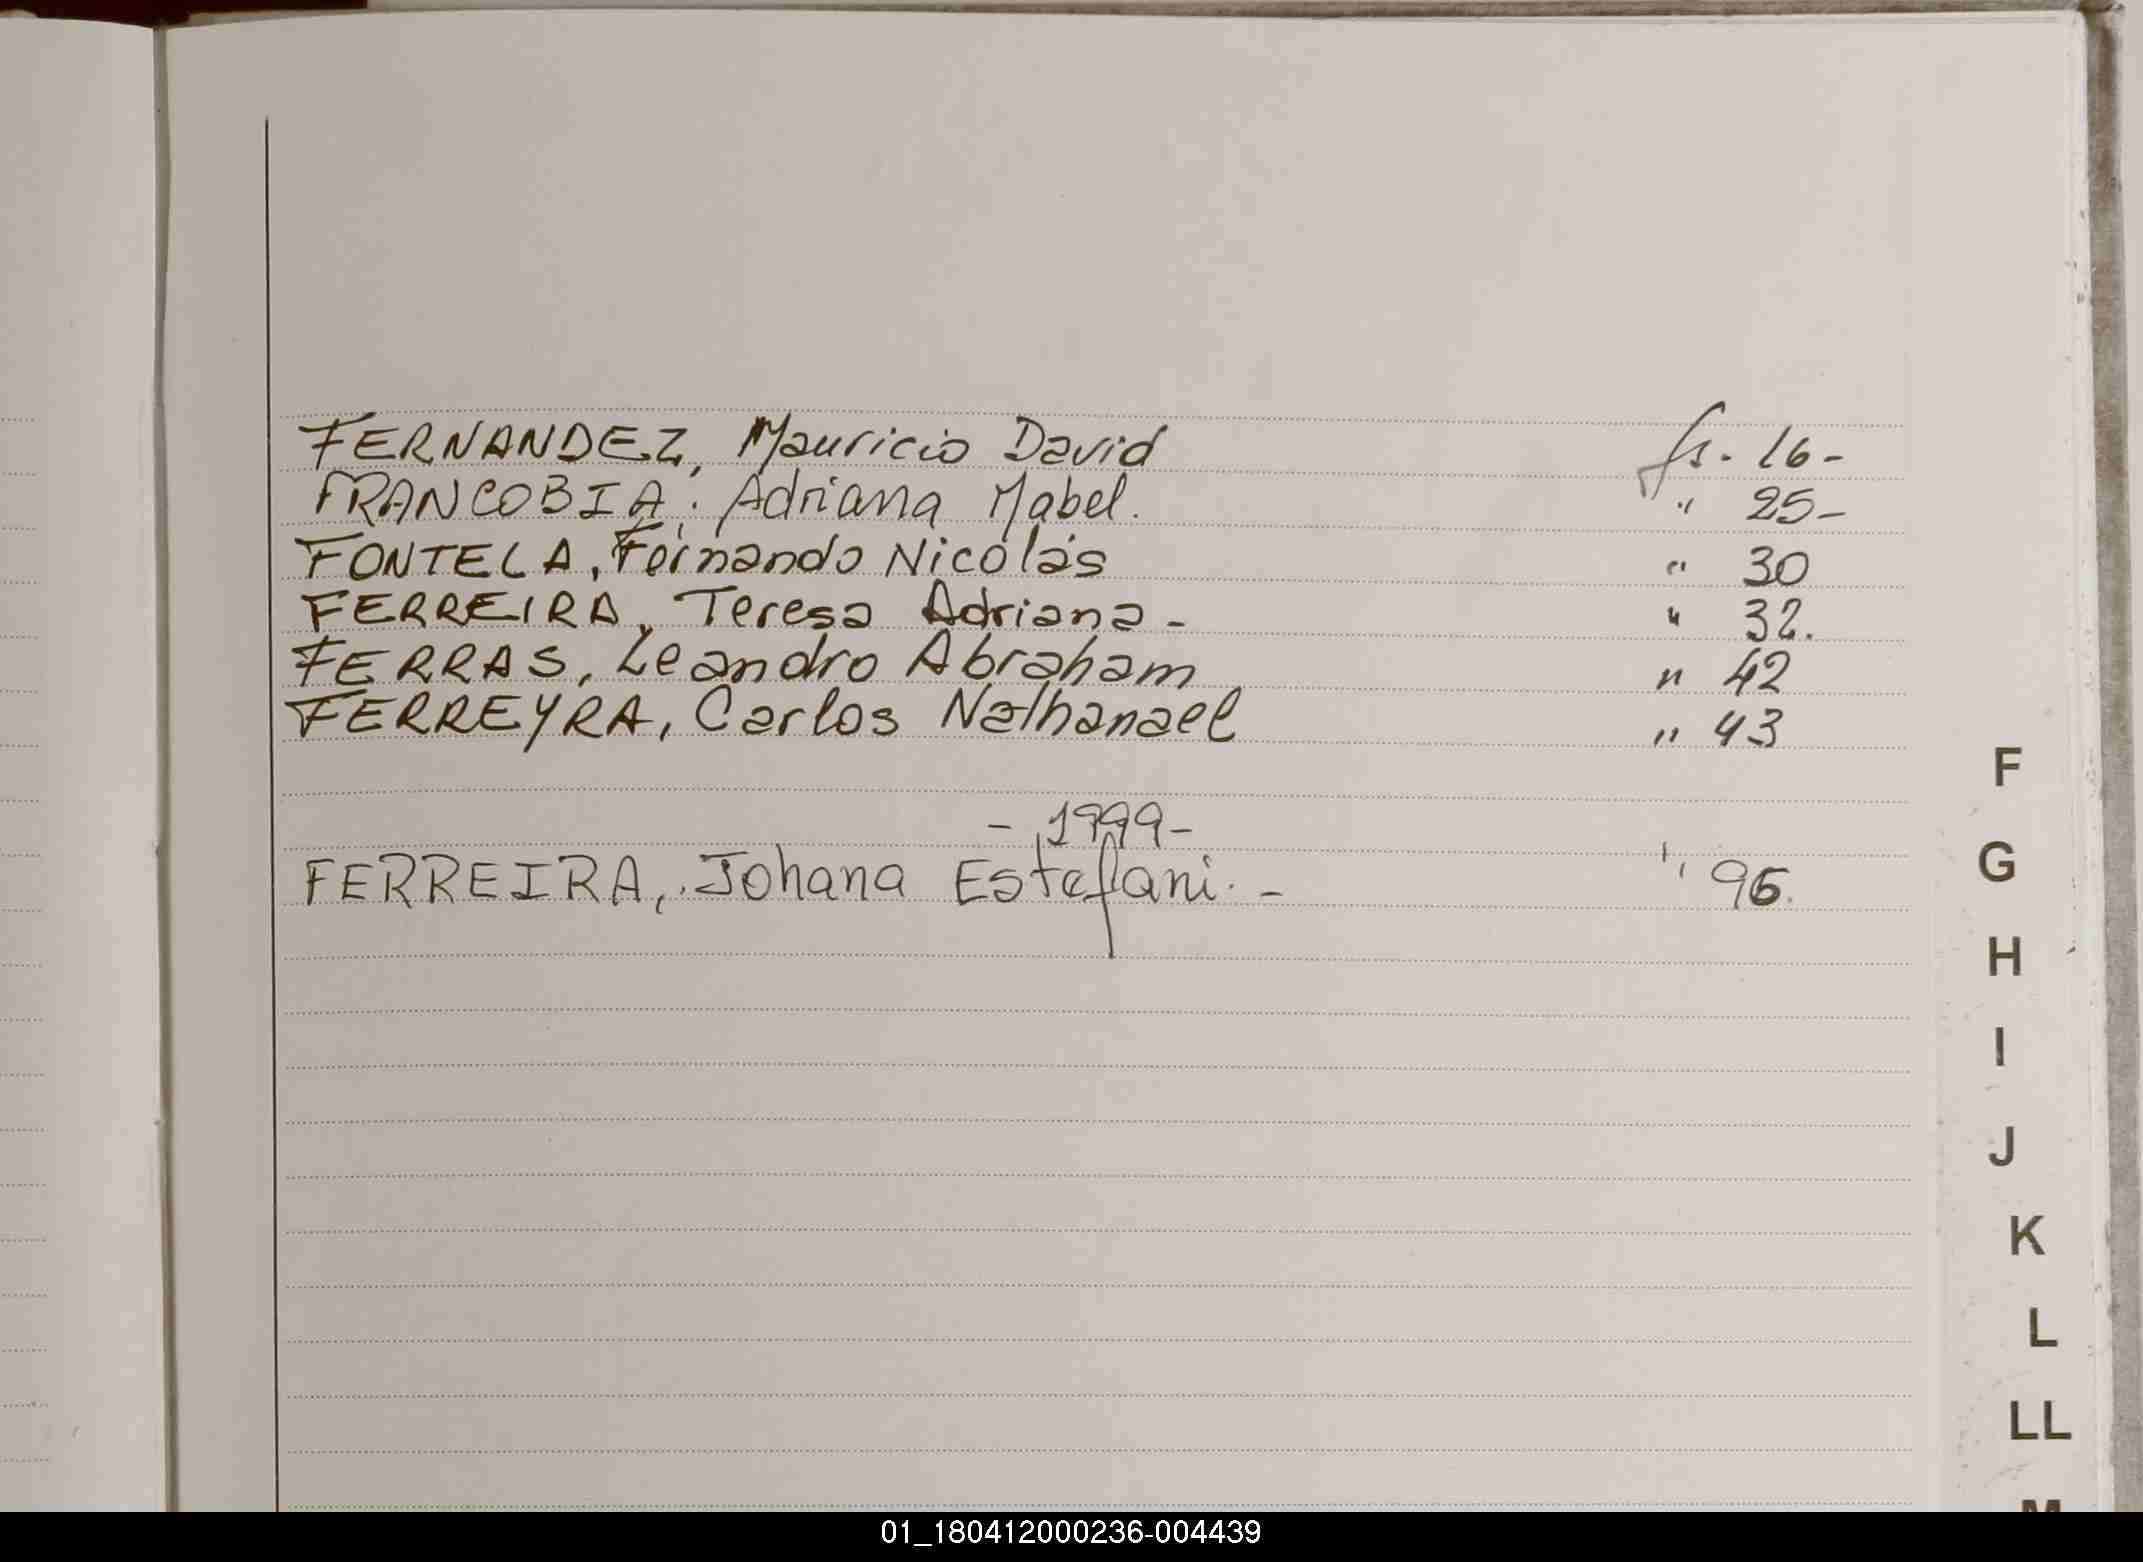 FERNANDEZ, Mauricio David fs. 16-
FRANCOBIA, Adriana Mabel. " 25-
FONTELA, Fernando Nicolás " 30
FERREIRA, Teresa Adriana - " 32.
FERRAS, Leandro Abraham " 42
FERREYRA, Carlos Nathanael " 43
- 1999 -
FERREIRA, Johana Estefani. - " 96.
F
G
H
I
J
K
L
LL
M
01_180412000236-004439